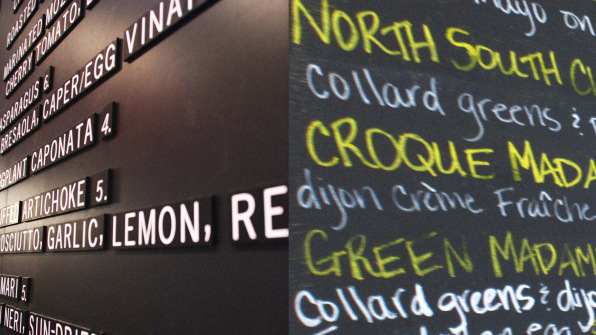 ROASTED
MARINATED
CHERRY TOMATO,
ASPARAGUS 6.
BRESAOLA, CAPER/EGG VINA
EGGPLANT CAPONATA 4.
ARTICHOKE 5.
PROSCIUTTO, GARLIC, LEMON, RE
MARI 5.
NERI, SUN-DRIED
mayo on
NORTH SOUTH C
Collard greens &
CROQUE MADA
dijon Crème Fraîche
GREEN MADAM
Collard greens & dijo